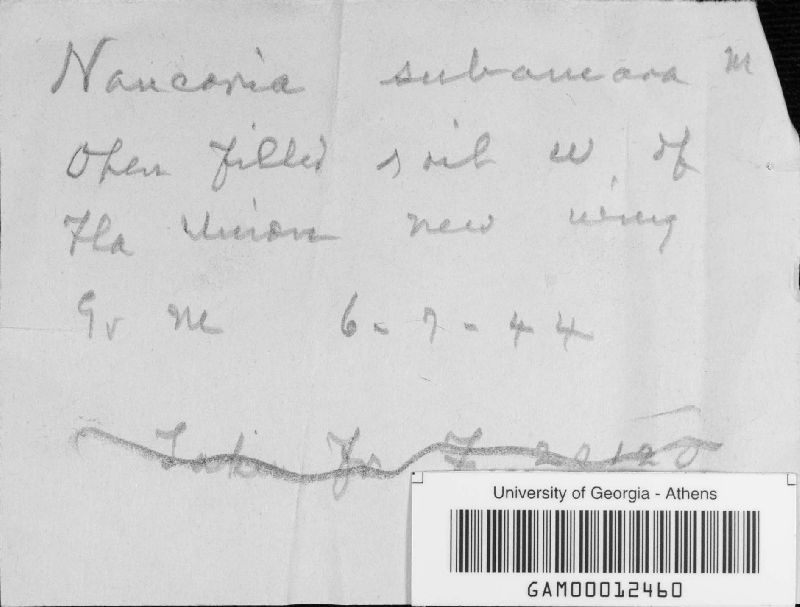 Naucoria subamara M
Open filled soil W. of
Fla Union new wing
Gr M 6-7-44
F 22120
University of Georgia - Athens
GAM00012460